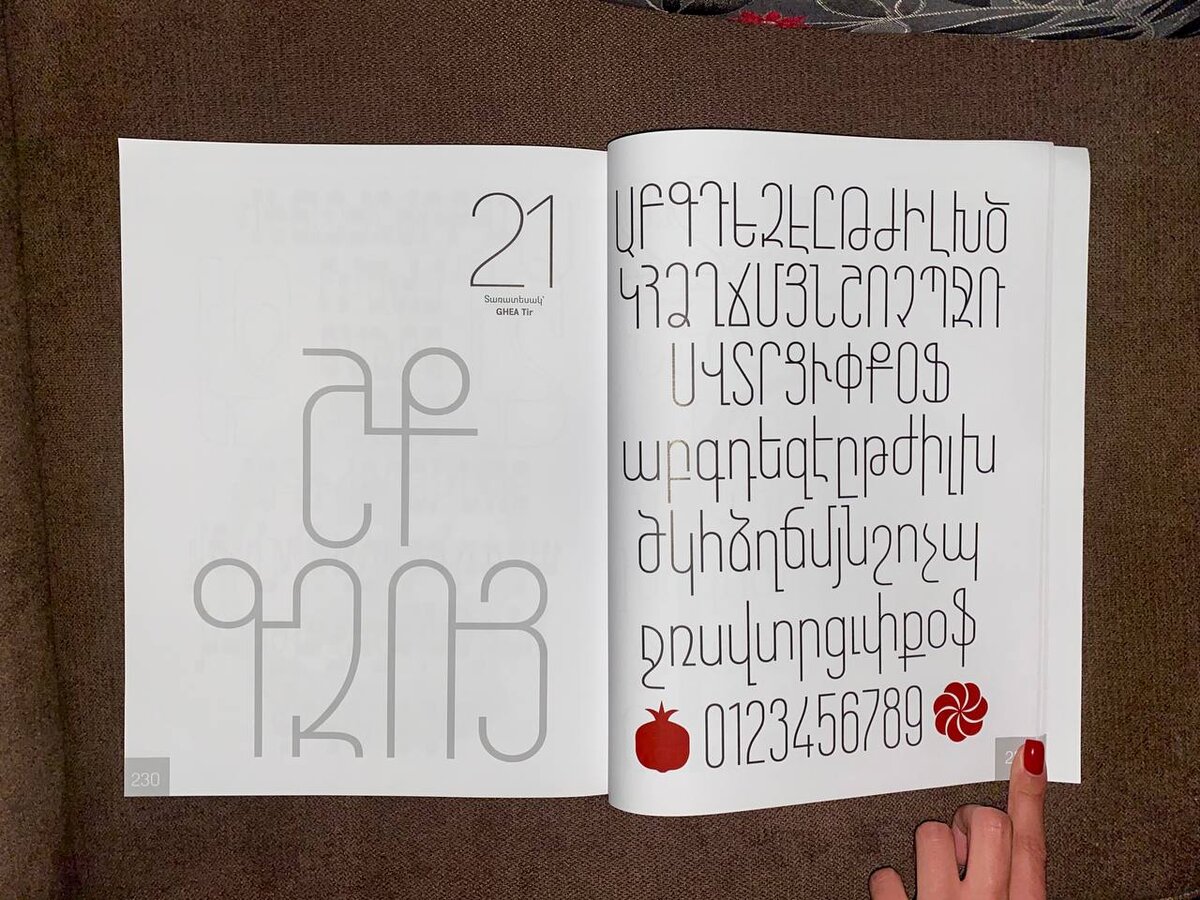 21
Տառատեսակ՝
GHEA Tir
ՇՔ
ԳԶՈՅ
230
ԱԲԳԴԵԶԷԸԹԺԻԼԽԾ
ԿՀՁՂՃՄՅՆՇՈՉՊՋՌ
ՍՎՏՐՑՒՓՔՕՖ
աբգդեզէըթժիլխ
ծկհձղճմյնշոչպ
ջռսվտրցւփքօֆ
0123456789